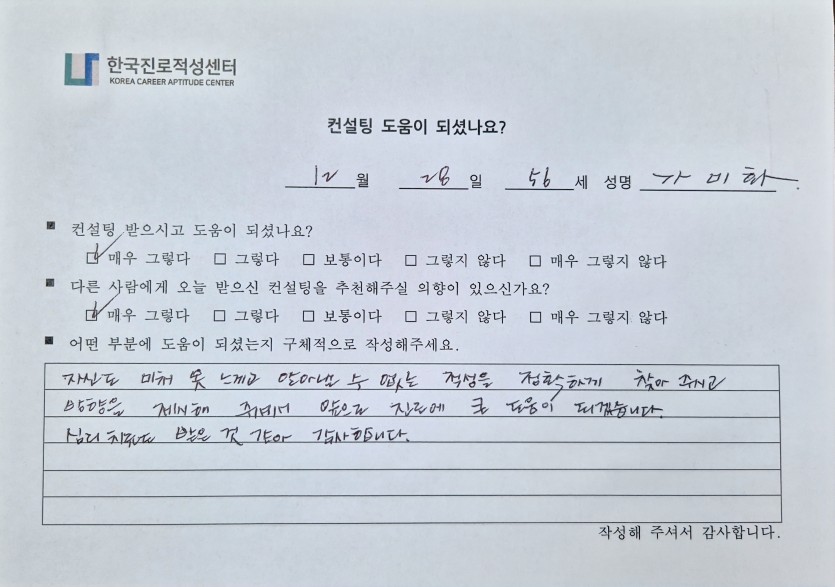 한국진로적성센터
KOREA CAREER APTITUDE CENTER
컨설팅 도움이 되셨나요?
12 월 28 일 56 세 성명 가 미 화
■ 컨설팅 받으시고 도움이 되셨나요?
☑ 매우 그렇다 □ 그렇다 □ 보통이다 □ 그렇지 않다 □ 매우 그렇지 않다
■ 다른 사람에게 오늘 받으신 컨설팅을 추천해주실 의향이 있으신가요?
☑ 매우 그렇다 □ 그렇다 □ 보통이다 □ 그렇지 않다 □ 매우 그렇지 않다
■ 어떤 부분에 도움이 되셨는지 구체적으로 작성해주세요.
자신도 미처 못 느끼고 알아낼 수 없는 적성을 정확하게 찾아 주시고
방향을 제시해 주셔서 앞으로 진로에 큰 도움이 되겠습니다.
심리 치료도 받은 것 같아 감사합니다.
작성해 주셔서 감사합니다.